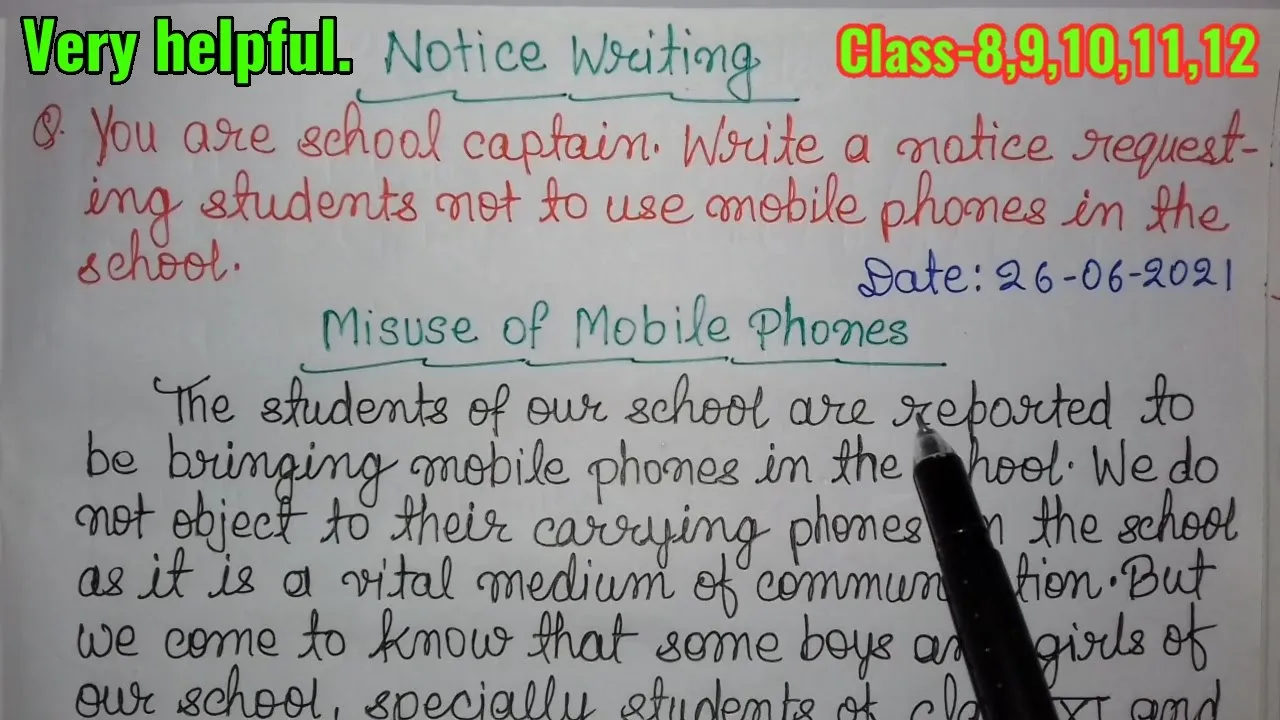 Very helpful. Notice Writing Class-8,9,10,11,12
Q. You are school captain. Write a notice request-
ing students not to use mobile phones in the
school.
Date: 26-06-2021
Misuse of Mobile Phones
The students of our school are reported to
be bringing mobile phones in the school. We do
not object to their carrying phones in the school
as it is a vital medium of communication. But
we come to know that some boys and girls of
our school, specially students of and